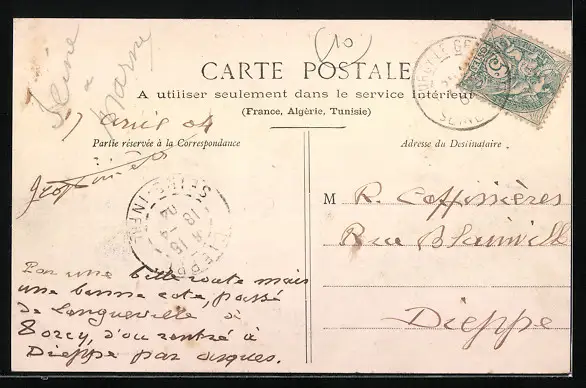 Seine
&
Marne
(10)
CARTE POSTALE
A utiliser seulement dans le service intérieur
(France, Algérie, Tunisie)
17 avril 04
Partie réservée à la Correspondance
Adresse du Destinataire
CHOISY LE
SEINE
SEINE-INFRE
18 -4
04
M R. Coffinières
Rue Blainville
Dieppe
Par une belle route mais
une bonne cote, passé
de Longueville à
Torcy, d'ou rentré à
Dieppe par arques.